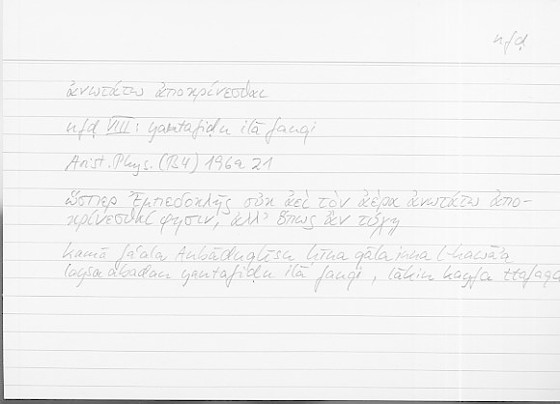 nfḍ
ἀνωτάτω ἀποκρίνεσθαι
nfḍ VIII: yantafiḍu ilā fauqi
Arist. Phys. (B4) 196a 21
ὥσπερ Ἐμπεδοκλῆς οὐκ ἀεὶ τὸν ἀέρα ἀνωτάτω ἀπο-
κρίνεσθαί φησιν, ἀλλ' ὅπως ἂν τύχῃ
kamā faʿala Anbāduqlīsu ḥīna qāla inna l-hawāʾa
laysa abadan yantafiḍu ilā fauqi, lākin kayfa ttafaqa